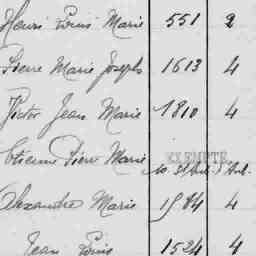 Henri Louis Marie 551 2
Pierre Marie Joseph 1613 4
Victor Jean Marie 1810 4
Etienne Pierre Marie EXEMPTÉ
Alexandre Marie 1984 4
Jean Louis 1524 4